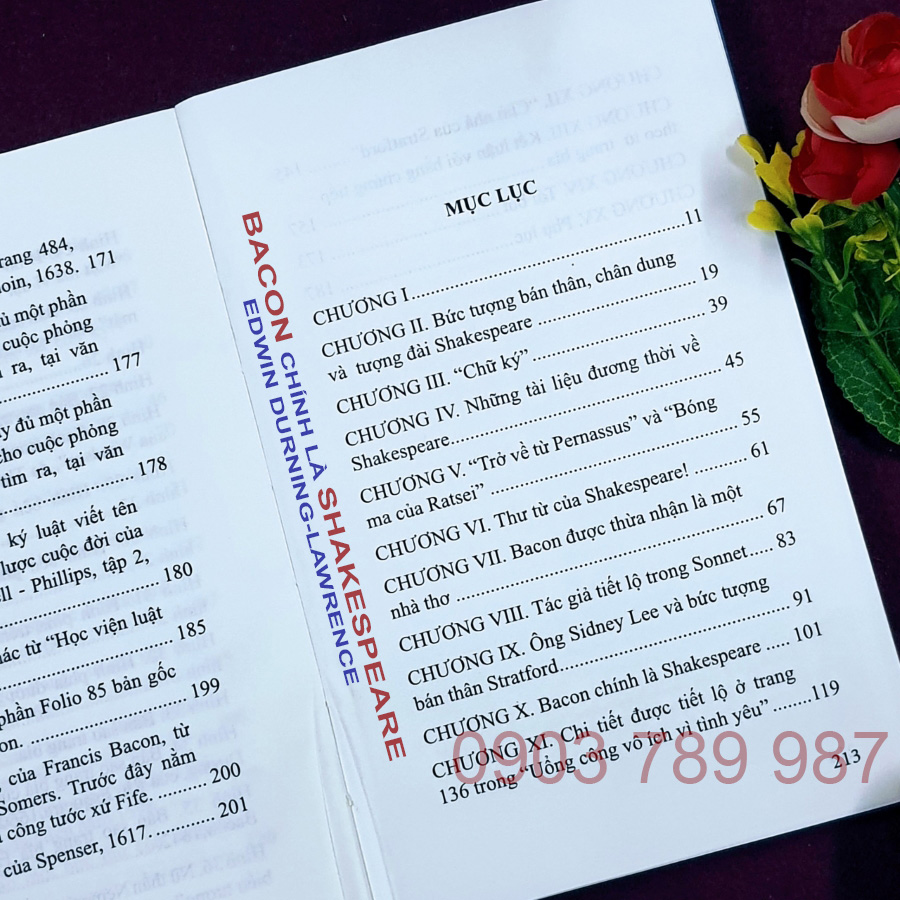 rang 484,
oin, 1638. 171
ủ một phần
cuộc phỏng
ra, tại văn
177
y đủ một phần
cho cuộc phỏng
tìm ra, tại văn
178
ký luật viết tên
lược cuộc đời của
ll - Phillips, tập 2,
180
ác từ “Học viện luật
185
phần Folio 85 bản gốc
on. 199
, của Francis Bacon, từ
Somers. Trước đây nằm
công tước xứ Fife. 200
của Spenser, 1617. 201
BACON CHÍNH LÀ SHAKESPEARE
EDWIN DURNING-LAWRENCE
MỤC LỤC
CHƯƠNG I 11
CHƯƠNG II. Bức tượng bán thân, chân dung
và tượng đài Shakespeare 19
CHƯƠNG III. “Chữ ký” 39
CHƯƠNG IV. Những tài liệu đương thời về
Shakespeare 45
CHƯƠNG V. “Trở về từ Pernassus” và “Bóng
ma của Ratsei” 55
CHƯƠNG VI. Thư từ của Shakespeare! 61
CHƯƠNG VII. Bacon được thừa nhận là một
nhà thơ 67
CHƯƠNG VIII. Tác giả tiết lộ trong Sonnet 83
CHƯƠNG IX. Ông Sidney Lee và bức tượng
bán thân Stratford 91
CHƯƠNG X. Bacon chính là Shakespeare 101
CHƯƠNG XI. Chi tiết được tiết lộ ở trang
136 trong “Uổng công vô ích vì tình yêu” 119
213
0903 789 987